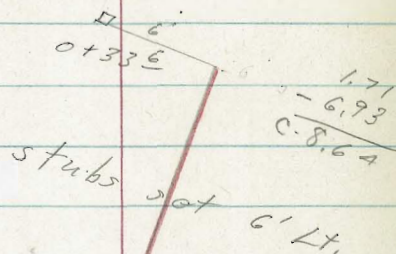 6'
0+33 6
1.71
- 6.93
C. 8.64
stubs set 6' Lt.